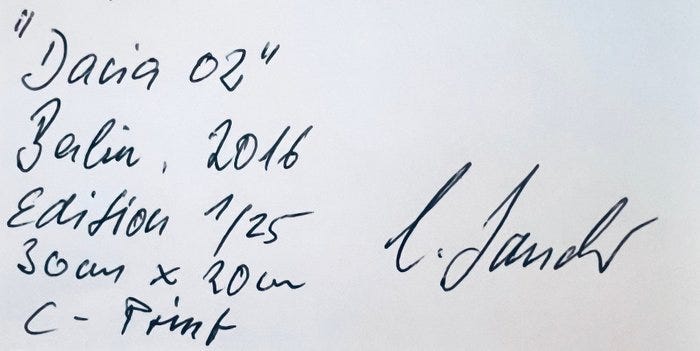 "Dacia 02"
Berlin, 2016
Edition 1/25
30cm x 20cm
C - Print